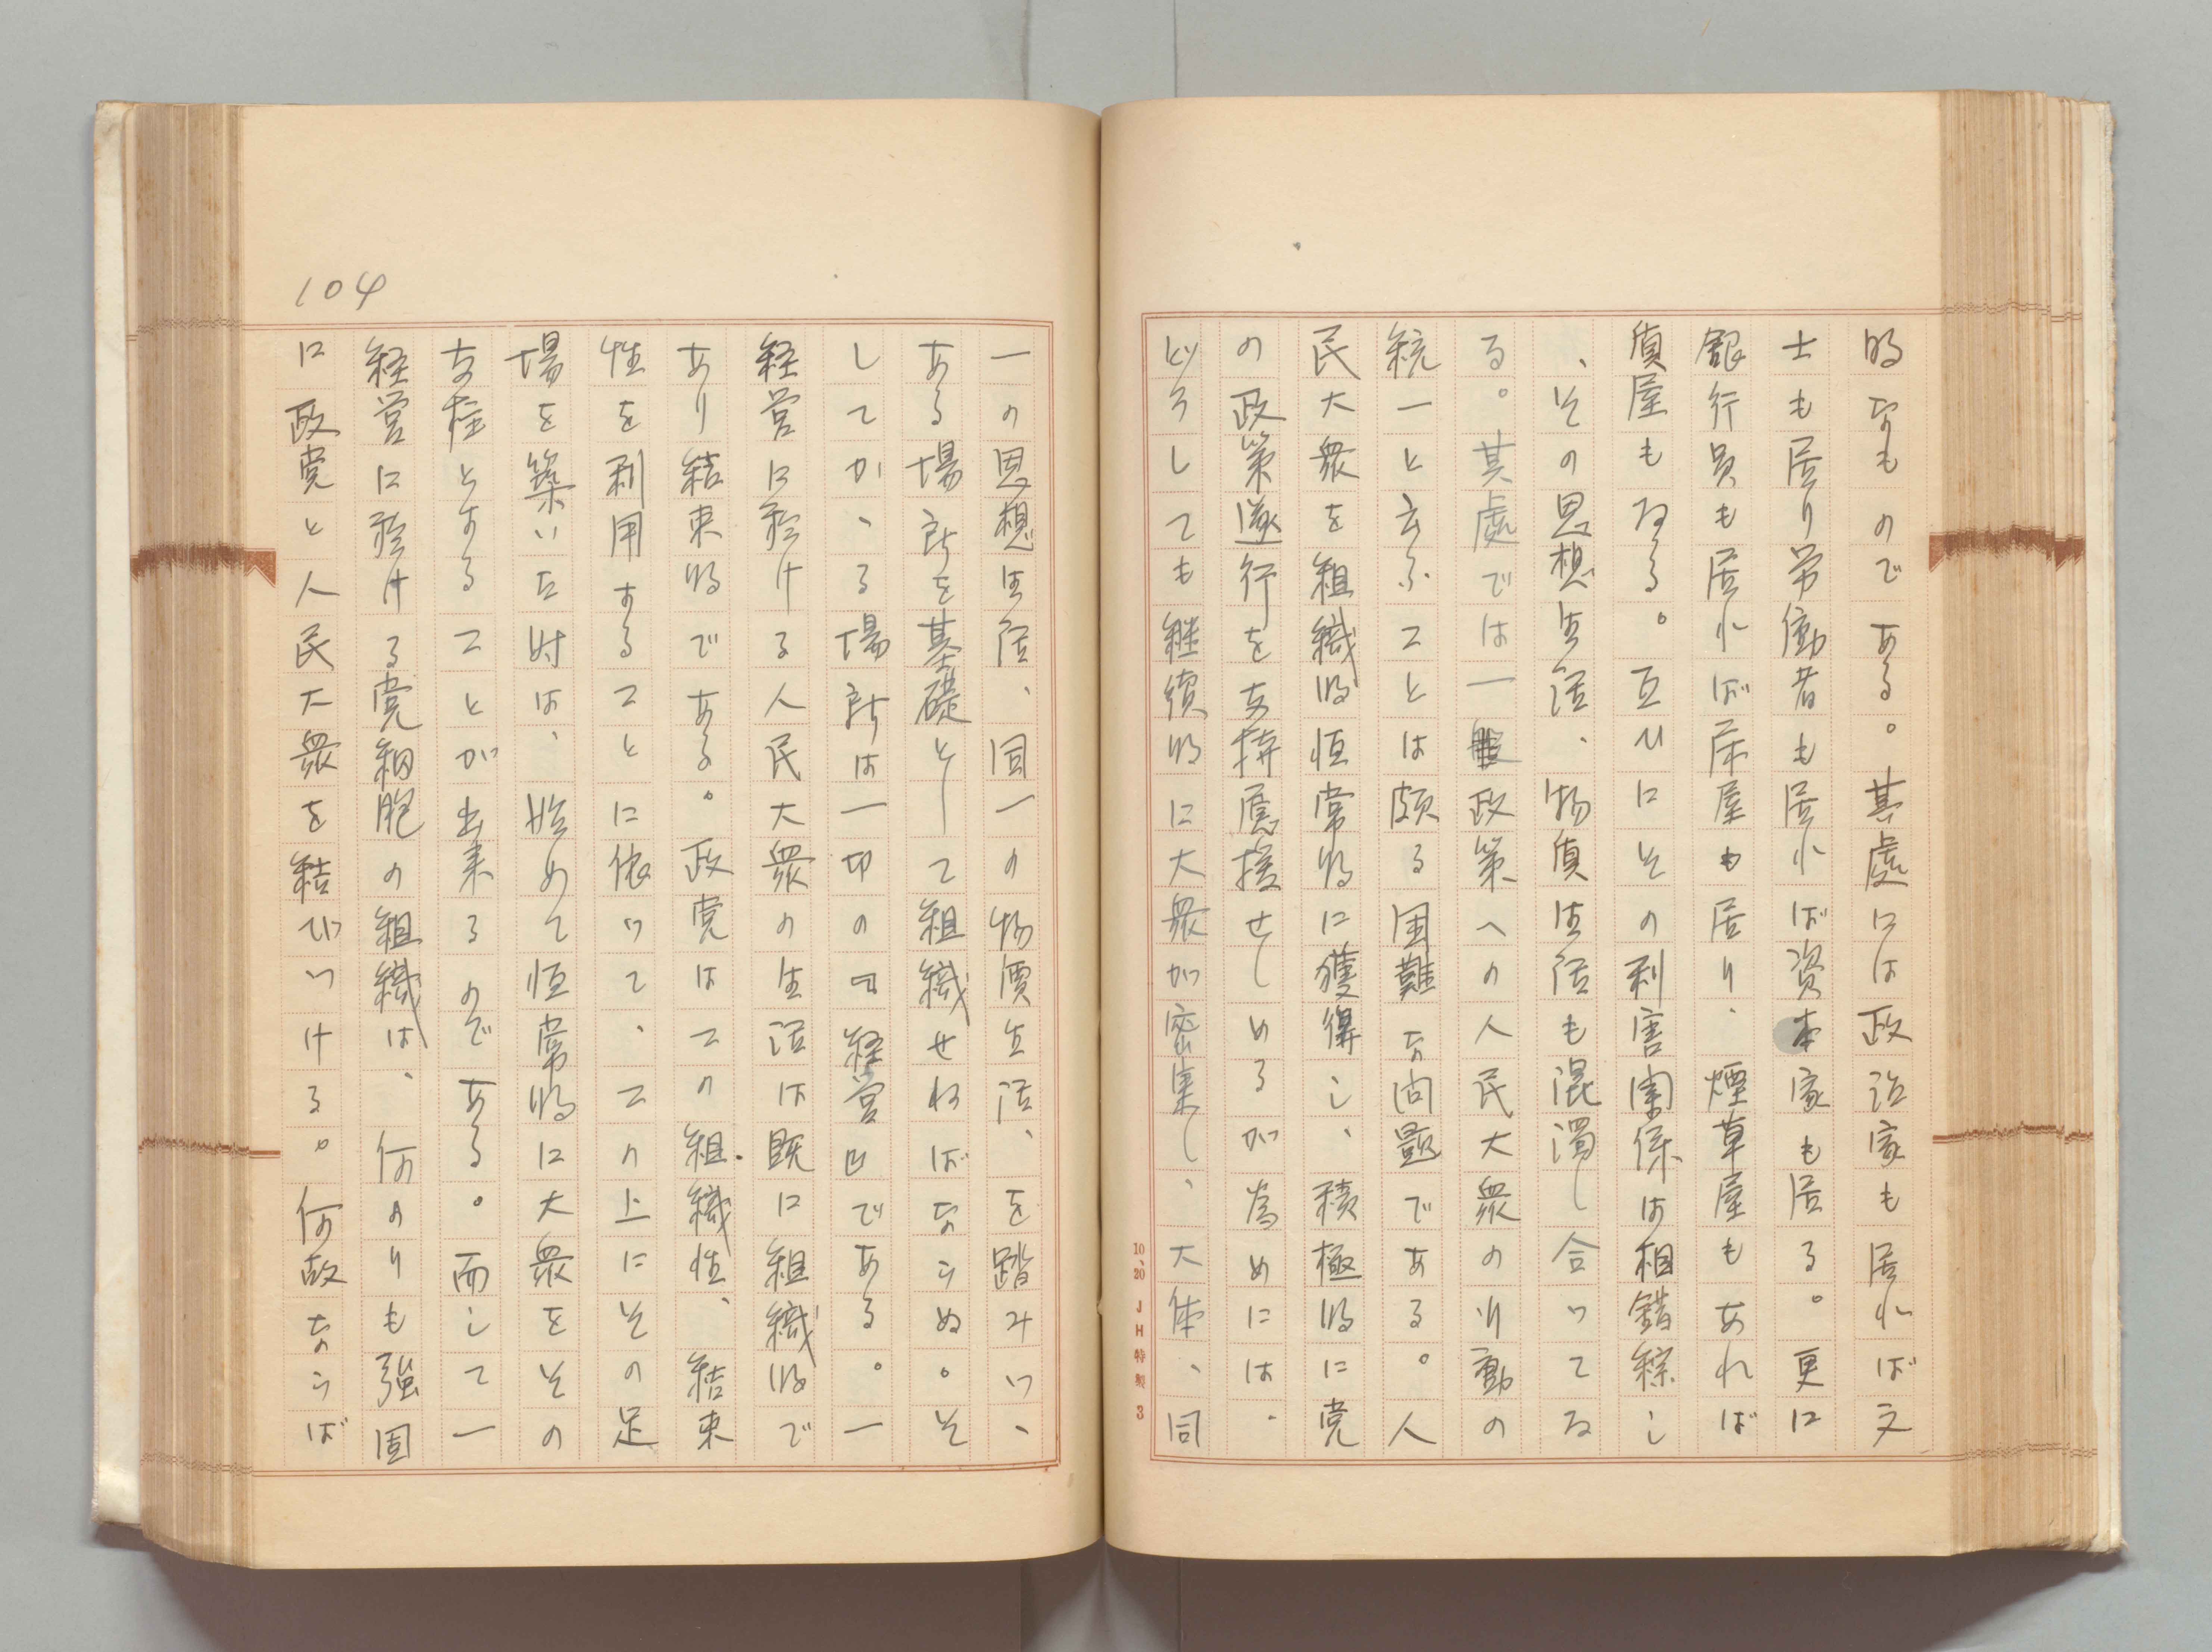 的なものである。其處には政治家も居れば文
士も居り労働者も居れば資本家も居る。更に
銀行員も居れば床屋も居り、煙草屋もあれば
質屋もゐる。互ひにその利害関係は相錯綜し
、その思想生活、物質生活も混濁し合つてゐ
る。其處では一般政策への人民大衆の行動の
統一と云ふことは頗る困難な問題である。人
民大衆を組織的恒常的に獲得し、積極的に党
の政策遂行を支持應援せしめるが為めには、
どうしても継続的に大衆が密集し、大体、同
10、20 JH特製 3
一の思想生活、同一の物價生活、を踏みつゝ
ある場所を基礎として組織せねばならぬ。そ
してかゝる場所は一切の『経営』である。一
経営に於ける人民大衆の生活は既に組織的で
あり結束的である。政党はこの組織性、結束
性を利用することに依つて、この上にその足
場を築いた時は、始めて恒常的に大衆をその
支柱とすることが出来るのである。而して一
経営に於ける党細胞の組織は、何のりも強固
に政党と人民大衆を結びつける。何故ならば
104